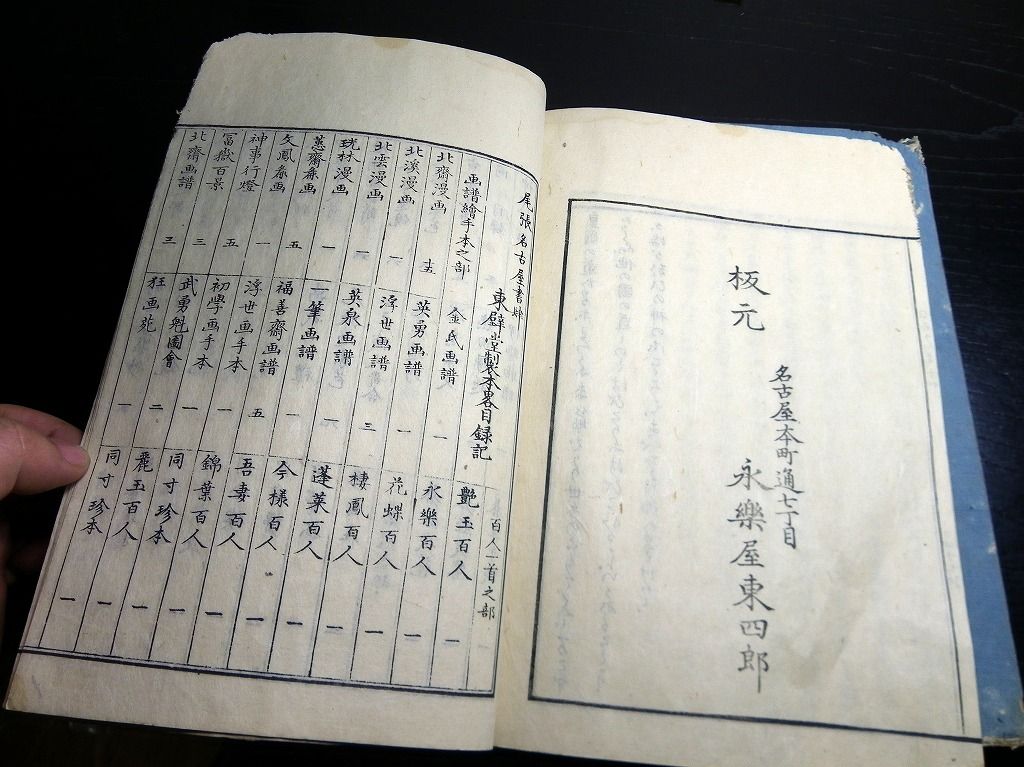 板元
名古屋本町通七丁目
永樂屋東四郎
尾張名古屋書肆
東壁堂製本畧目録記
画譜繪手本之部
北齋漫画 十五
北溪漫画 一
北雲漫画 一
光林漫画 一
蕙齋麁画 一
文鳳麁画 五
神事行燈 五
冨嶽百景 三
北齋画譜 三
金氏画譜 一
英勇画譜 一
浮世画譜 三
英泉画譜 一
一筆画譜 一
福善齋画譜 五
浮世画手本 一
初學画手本 一
武勇魁圖會 二
狂画苑
百人一首之部
艶玉百人 一
永樂百人 一
花蝶百人 一
棲鳳百人 一
蓬莱百人 一
今樣百人 一
吾妻百人 一
錦葉百人 一
同寸珍本 一
麗玉百人 一
同寸珍本 一